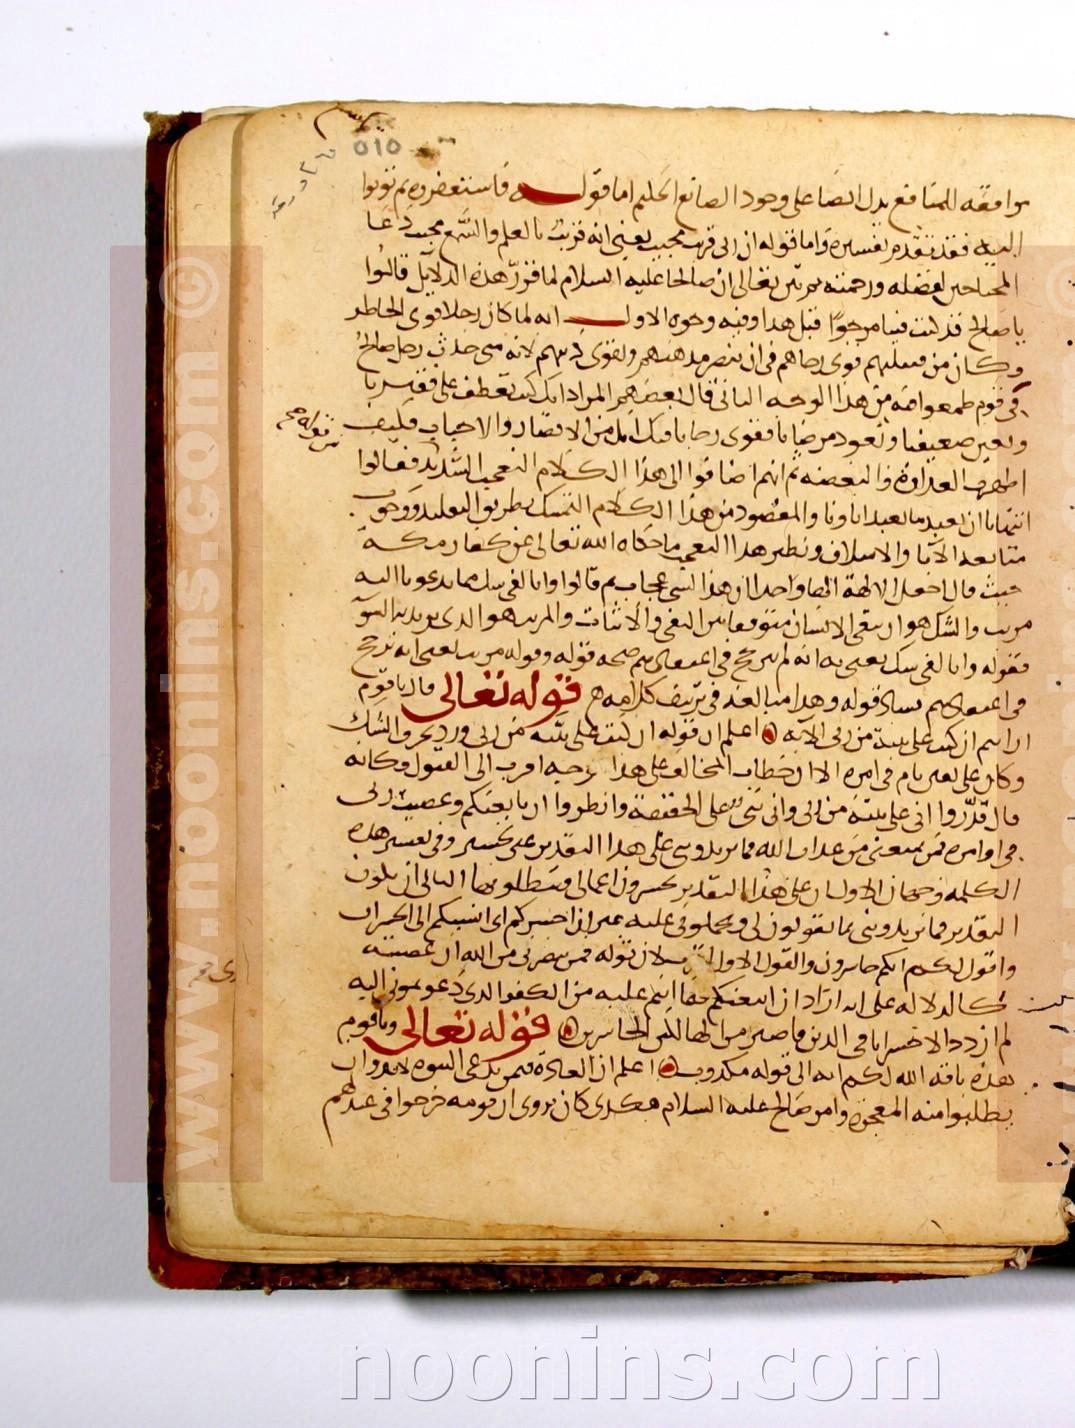 موافقه للمنافع يدل ايضا على وجود الصانع الحكيم اما قوله فاستغفروه ثم توبوا
اليه فقد تقدم تفسيره واما قوله ان ربي قريب مجيب يعني انه قريب بالعلم والسمع مجيب دعا
المحتاجين بفضله ورحمته ثم بين تعالى ان صالحا عليه السلام لما قرر هذه الدلايل قالوا
يا صالح قد كنت فينا مرجوا قبل هذا وفيه وجوه الاول انه لما كان رجلا قوي الخاطر
وكان من قبيلتهم قوي رجاهم في ان ينصر مذهبهم ويقوي دينهم لانه متى حدث رجل صالح
في قوم طمعوا فيه من هذا الوجه الثاني قال بعضهم المراد انك كنت تعطف على فقيرنا
وتعين ضعيفنا وتعود مرضانا فقوي رجانا فيك انك من الانصار والاحباب فكيف
اظهرت العداوة والبغضه ثم انهم اضافوا الى هذا الكلام التعجب الشديد فقالوا
اتنهانا ان نعبد ما يعبد اباونا والمقصود من هذا الكلام التمسك بطريق التقليد ووجوب
متابعه الابا والاسلاف ونظير هذا التعجب ما حكاه الله تعالى عن كفار مكة
حيث قال اجعل الالهة الها واحدا ان هذا لشي عجاب ثم قالوا واننا لفي شك مما تدعونا اليه
مريب والشك هو ان يبقى الانسان متوقفا بين النفي والاثبات والمريب هو الذي يريد به السو
فقوله واننا لفي شك يعني به انه لم يترجح في اعتقادهم صحه قوله وقوله مريب يعني انه ترجح
في اعتقادهم فساد قوله وهذا مبالغه في تزييف كلامه قوله تعالى قال يا قوم
ارايتم ان كنت على بينة من ربي الآيه اعلم ان قوله ان كنت على بينه من ربي ورد بحرف الشك
وكان على يقين تام في امره الا ان خطاب المخالف على هذا الوجه اقرب الى القبول وكانه
قال قدروا اني على بينة من ربي واني نبي على الحقيقة وانظروا ان تابعتكم وعصيت ربي
في اوامره فمن يمنعني من عذاب الله فما تزيدونني على هذا التقدير غير تخسير وفي تفسير هذه
الكلمه وجهان الاول ان على هذا التقدير تخسرون اعمالي وتبطلونها الثاني ان يكون
التقدير فما تزيدونني بما تقولون لي وتحملوني عليه غير ان اخسركم اي انسبكم الى الخسران
واقول لكم انكم خاسرون والقول الاول اقرب لان قوله فمن ينصرني من الله ان عصيته
كالدلاله على انه اراد ان اتبعتكم فيما انتم عليه من الكفر الذي دعوتموني اليه
لم ازدد الا خسرانا في الدين فاصير من الهالكين الخاسرين قوله تعالى ويا قوم
هذه ناقه الله لكم ايه الى قوله مكذوب اعلم ان العادة فيمن يدعي النبوه لا بد وان
يطلبوا منه المعجزه وامر صالح عليه السلام هكذى كان يروى ان قومه خرجوا في عيد لهم
noonins.com
www.noonins.com ©